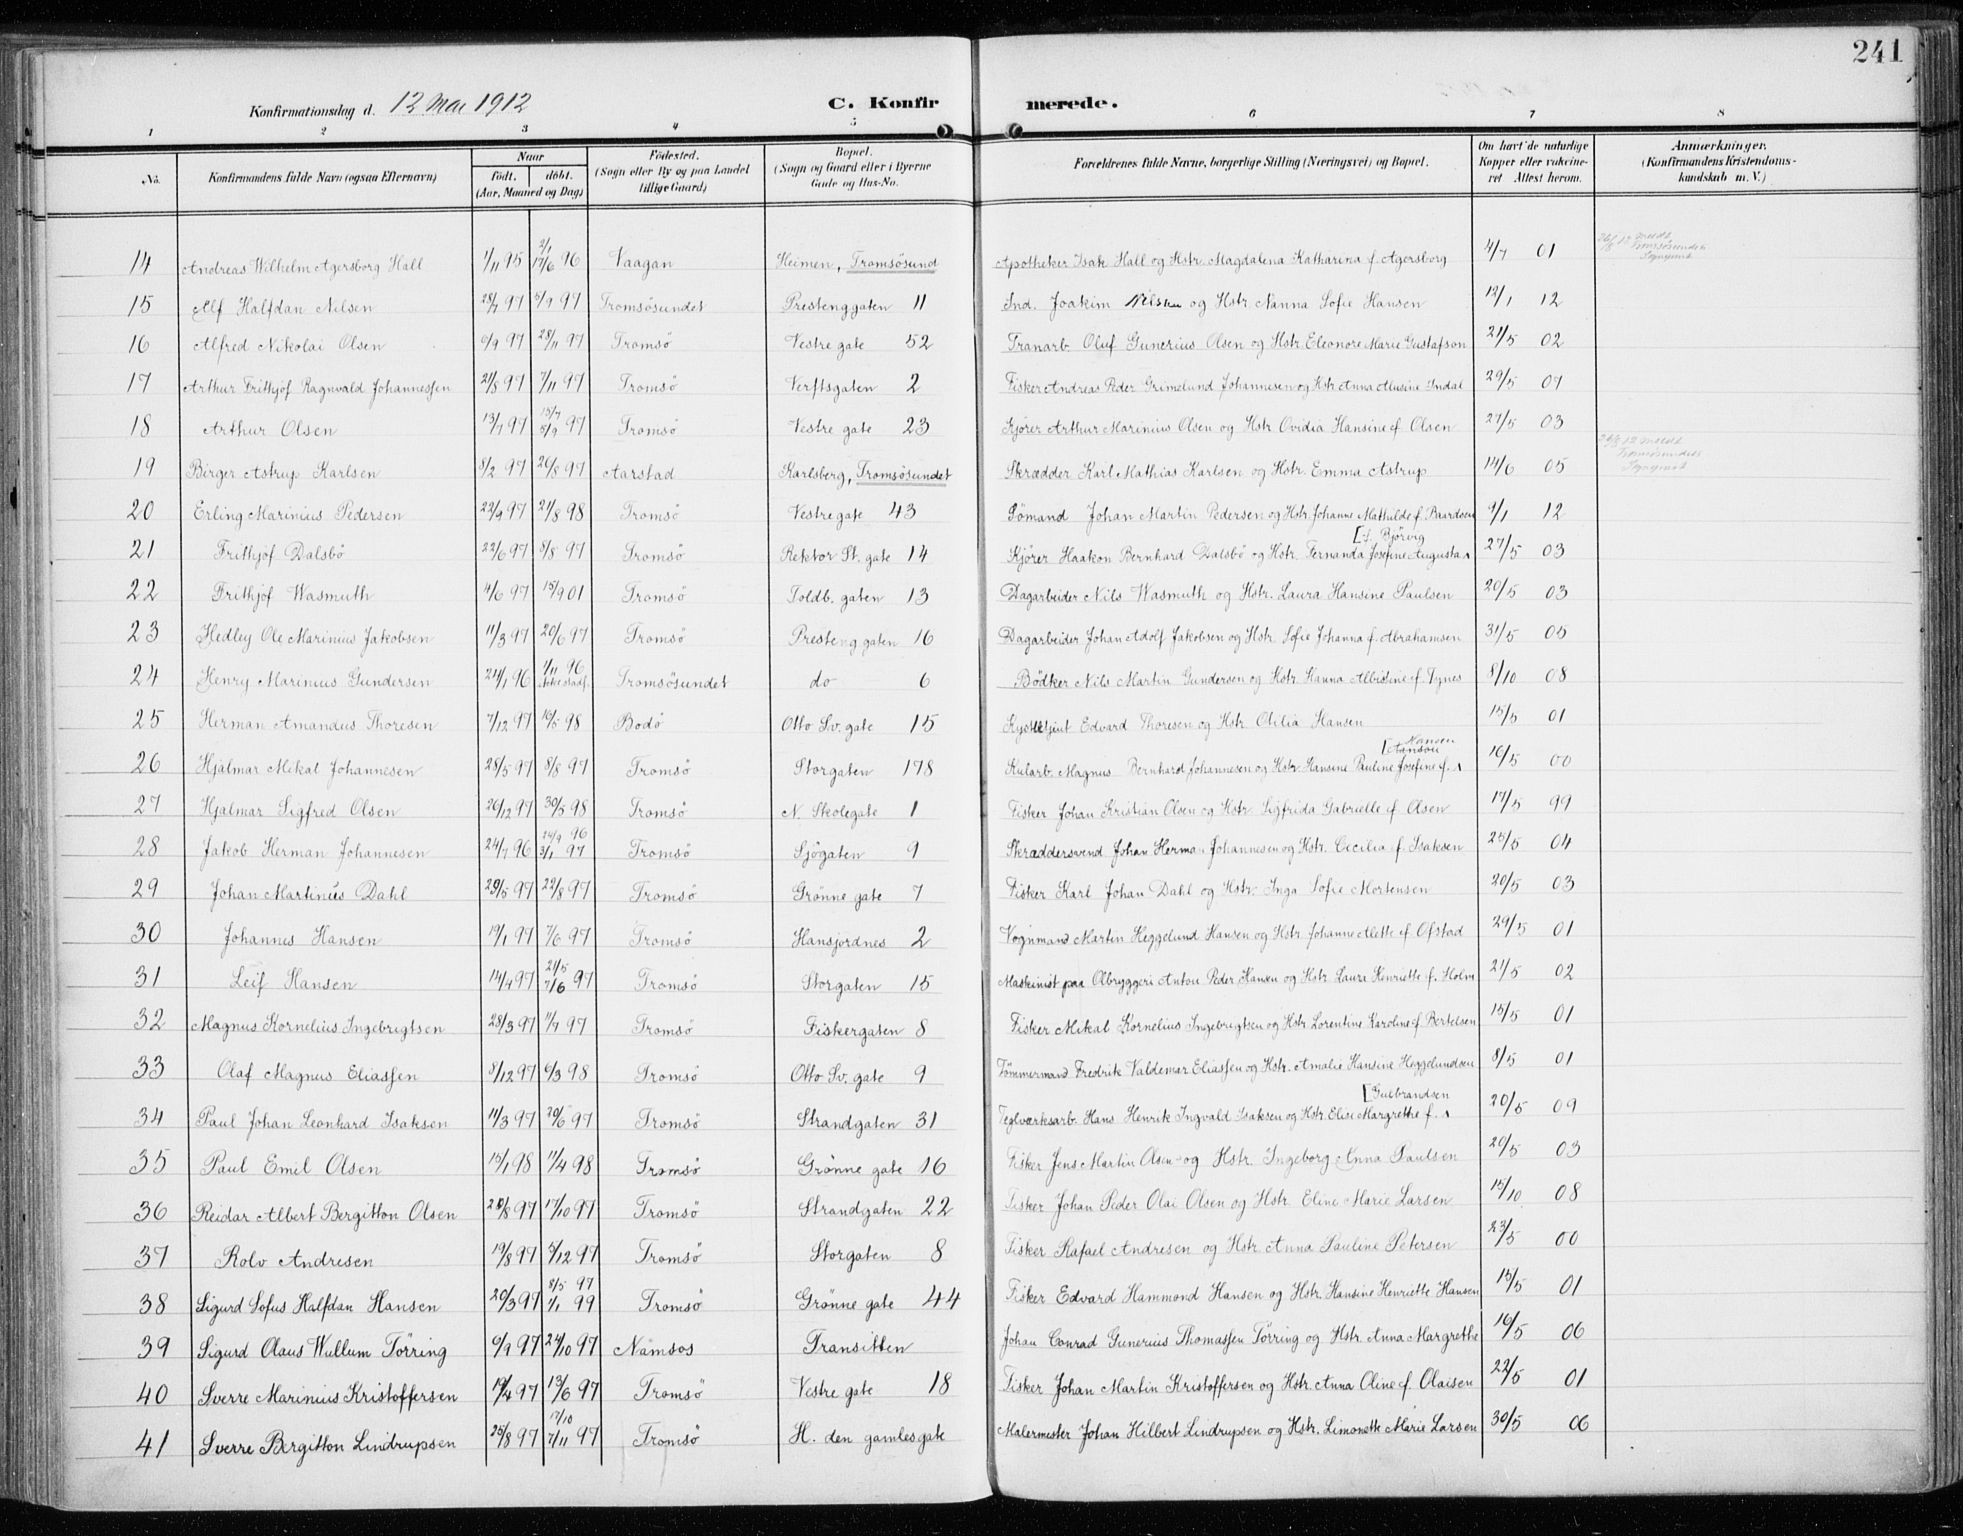 241
Konfirmationsdag d. 12 Mai 1912 C. Konfirmerede.
1 2 3 4 5 6 7 8
No. Konfirmandens fulde Navn (ogsaa Efternavn) Naar født. døbt. (Aar, Maaned og Dag) Fødested. (Sogn eller By og paa Landet tillige Gaard) Bopæl. (Sogn og Gaard eller i Byerne Gade og Hus-No. Forældrenes fulde Navne, borgerlige Stilling (Næringsvei) og Bopæl. Om havt de naturlige Kopper eller vakcineret Attest herom. Anmærkninger. (Konfirmandens Kristendomskundskab m. V.)
14 Andreas Wilhelm Agersborg Hall 1/11 95 2/1 17/6 96 Vaagan Heimen, Tromsösund Apotheker Isak Hall og Hstr. Magdalena Katharina f. Agersborg 4/7 01 meldt Tromsøsundets Sogneprest
15 Alf Halfdan Nilsen 28/7 97 5/9 97 Tromsösundet Prestenggaten 11 Ind. Joakim Nilsen og Hstr. Nanna Sofie Hansen 12/1 12
16 Alfred Nikolai Olsen 6/9 97 28/11 97 Tromsö Vestre gate 52 Tranarb. Oluf Gunerius Olsen og Hstr. Eleonore Marie Gustafson 21/5 02
17 Arthur Frithjof Ragnvald Johannessen 21/8 97 7/11 97 Tromsö Verftsgaten 2 Fisker Andreas Peder Grimelund Johannesen og Hstr Anna Alusine Indal 29/5 07
18 Arthur Olsen 13/7 97 15/7 5/9 97 Tromsö Vestre gate 23 Kjörer Arthur Marinius Olsen og Hstr. Ovidia Hansine f. Olsen 27/5 03
19 Birger Astrup Karlsen 8/2 97 26/8 97 Aarstad Karlsberg, Tromsösundet Skrædder Karl Mathias Karlsen og Hstr. Emma Astrup 14/6 05 meldt Tromsøsundets Sogneprest
20 Erling Marinius Pedersen 22/9 97 21/8 98 Tromsö Vestre gate 43 Sömand Johan Martin Pedersen og Hstr. Johanne Mathilde f. Baardsen 9/1 12
21 Frithjof Dalsbö 22/6 97 8/8 97 Tromsö Rektor St. gate 14 Kjörer Haakon Bernhard Dalsbö og Hstr. Fernanda Josefine Augusta [f. Bjørvig 27/5 03
22 Frithjof Wasmuth 4/6 97 15/9 01 Tromsö Toldb. gaten 13 Dagarbeider Nils Wasmuth og Hstr. Laura Hansine Paulsen 20/5 03
23 Hedley Ole Marinius Jakobsen 11/3 97 20/6 97 Tromsö Prestenggaten 16 Dagarbeider Johan Adolf Jakobsen og Hstr. Sofie Johanna f. Abrahamsen 31/5 05
24 Henry Marinius Gundersen 21/1 96 1/11 96 Tromsösundet do 6 Bödker Nils Martin Gundersen og Hstr. Hanna Albistine f. Tynes 8/10 08
25 Herman Amandus Thoresen 7/12 97 16/5 98 Bodö Otto Sv. gate 15 Edvard Thoresen og Hstr. Otilia Hansen 15/5 01
26 Hjalmar Mikal Johannesen 28/5 97 8/8 97 Tromsö Storgaten 178 Kularb. Magnus Bernhard Johannesen og Hstr. Hansine Pauline Josefine f. [Hansen 16/5 00
27 Hjalmar Sigfred Olsen 26/12 97 30/5 98 Tromsö N. Skolegate 1 Fisker Johan Kristian Olsen og Hstr. Sigfrida Gabrielle f. Olsen 17/5 99
28 Jakob Herman Johannesen 24/7 96 24/9 96 3/1 97 Tromsö Sjögaten 9 Skræddersvend Johan Herman Johannesen og Hstr. Cecilia f. Isaksen 25/5 04
29 Johan Martinius Dahl 29/5 97 22/8 97 Tromsö Grönne gate 7 Fisker Karl Johan Dahl og Hstr. Inga Sofie Mortensen 20/5 03
30 Johannes Hansen 19/1 97 7/6 97 Tromsö Hansjordnes 2 Vognmand Martin Heggelund Hansen og Hstr. Johanne Alette f. Ofstad 29/5 01
31 Leif Hansen 14/4 97 21/5 7/6 97 Tromsö Storgaten 15 Maskinist paa Ølbryggeri Anton Peder Hansen og Hstr. Laura Henriette f. Holm 21/5 02
32 Magnus Kornelius Ingebrigtsen 28/3 97 11/7 97 Tromsö Fiskergaten 8 Fisker Mikal Kornelius Ingebrigtsen og Hstr. Lorentine Karoline f. Bertelsen 15/5 01
33 Olaf Magnus Eliassen 8/12 97 6/3 98 Tromsö Otto Sv. gate 9 Tömmermand Fredrik Valdemar Eliassen og Hstr. Amalie Hansine Heggelundsen 8/5 01
34 Paul Johan Leonhard Isaksen 11/3 97 20/6 97 Tromsö Strandgaten 31 Teglværksarb. Hans Henrik Ingvald Isaksen og Hstr. Elise Margrethe f. [Gulbrandsen 20/5 09
35 Paul Emil Olsen 15/1 98 11/4 98 Tromsö Grönne gate 16 Fisker Jens Martin Olsen og Hstr. Ingeborg Anna Paulsen 26/5 03
36 Reidar Albert Bergitton Olsen 28/8 97 17/10 97 Tromsö Strandgaten 22 Fisker Johan Peder Olai Olsen og Hstr. Eline Marie Larsen 15/10 08
37 Rolv Andresen 19/8 97 5/12 97 Tromsö Storgaten 8 Fisker Rafael Andresen og Hstr. Anna Pauline Petersen 23/5 00
38 Sigurd Sofus Halfdan Hansen 20/3 97 8/5 97 1/1 99 Tromsö Grönne gate 44 Fisker Edvard Hammond Hansen og Hstr. Hansine Henriette Hansen 15/5 01
39 Sigurd Olaus Wullum Törring 6/9 97 24/10 97 Namsos Transitten Johan Conrad Gunerius Thomassen Törring og Hstr. Anna Margrethe 16/5 06
40 Sverre Marinius Kristoffersen 19/4 97 13/6 97 Tromsö Vestre gate 18 Fisker Johan Martin Kristoffersen og Hstr. Anna Oline f. Olaisen 22/5 01
41 Sverre Bergitton Lindrupsen 25/8 97 17/10 7/11 97 Tromsö H. den gamlesgate Malermester Johan Hilbert Lindrupsen og Hstr. Limonette Marie Larsen 30/5 06